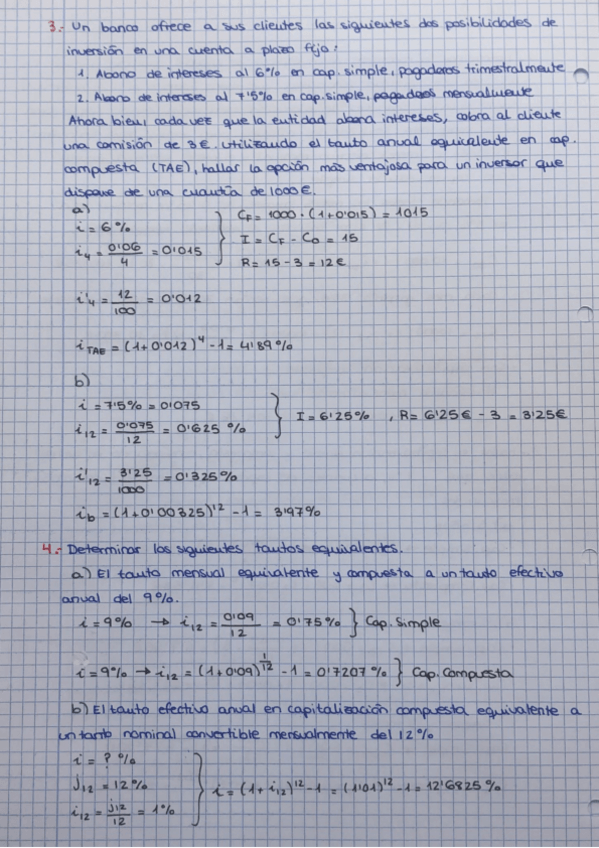 3.- Un banco ofrece a sus clientes las siguientes dos posibilidades de
inversión en una cuenta a plazo fijo:
1. Abono de intereses al 6% en cap. simple, pagaderos trimestralmente
2. Abono de intereses al 7'5% en cap. simple, pagaderos mensualmente
Ahora bien, cada vez que la entidad abona intereses, cobra al cliente
una comisión de 3€. Utilizando el tanto anual equivalente en cap.
compuesta (TAE), hallar la opción más ventajosa para un inversor que
dispone de una cuantía de 1000€.
a)
i = 6%
i₄ = 0'06/4 = 0'015 } C_F = 1000 · (1+0'015) = 1015
I = C_F - C_0 = 15
R = 15 - 3 = 12€
i'₄ = 12/100 = 0'012
i_TAE = (1+0'012)⁴ - 1 = 4'89%
b)
i = 7'5% = 0'075
i₁₂ = 0'075/12 = 0'625 % } I = 6'25% , R = 6'25€ - 3 = 3'25€
i'₁₂ = 3'25/1000 = 0'325%
i_b = (1+0'00325)¹² - 1 = 3'97%
4.- Determinar los siguientes tantos equivalentes.
a) El tanto mensual equivalente y compuesta a un tanto efectivo
anual del 9%.
i = 9% → i₁₂ = 0'09/12 = 0'75% } Cap. Simple
i = 9% → i₁₂ = (1+0'09)^(1/12) - 1 = 0'7207% } Cap. Compuesta
b) El tanto efectivo anual en capitalización compuesta equivalente a
un tanto nominal convertible mensualmente del 12%
i = ? %
j₁₂ = 12%
i₁₂ = j₁₂/12 = 1% } i = (1+i₁₂)¹² - 1 = (1'01)¹² - 1 = 12'6825%